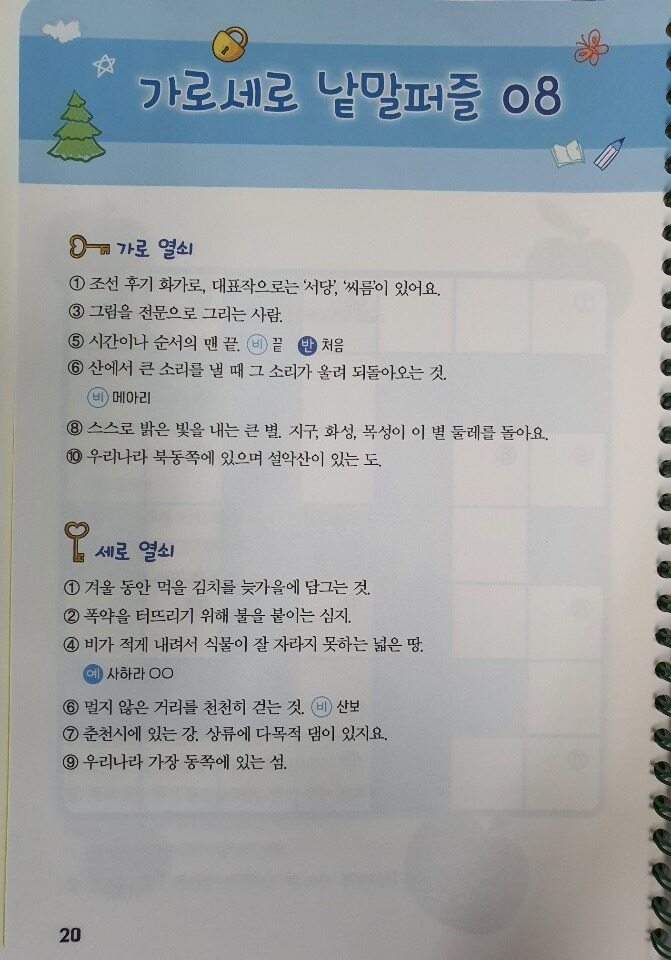 가로세로 낱말퍼즐 08
가로 열쇠
① 조선 후기 화가로, 대표작으로는 '서당', '씨름'이 있어요.
③ 그림을 전문으로 그리는 사람.
⑤ 시간이나 순서의 맨 끝. 비 끝 반 처음
⑥ 산에서 큰 소리를 낼 때 그 소리가 울려 되돌아오는 것.
비 메아리
⑧ 스스로 밝은 빛을 내는 큰 별. 지구, 화성, 목성이 이 별 둘레를 돌아요.
⑩ 우리나라 북동쪽에 있으며 설악산이 있는 도.
세로 열쇠
① 겨울 동안 먹을 김치를 늦가을에 담그는 것.
② 폭약을 터뜨리기 위해 불을 붙이는 심지.
④ 비가 적게 내려서 식물이 잘 자라지 못하는 넓은 땅.
예 사하라 ○○
⑥ 멀지 않은 거리를 천천히 걷는 것. 비 산보
⑦ 춘천시에 있는 강. 상류에 다목적 댐이 있지요.
⑨ 우리나라 가장 동쪽에 있는 섬.
20